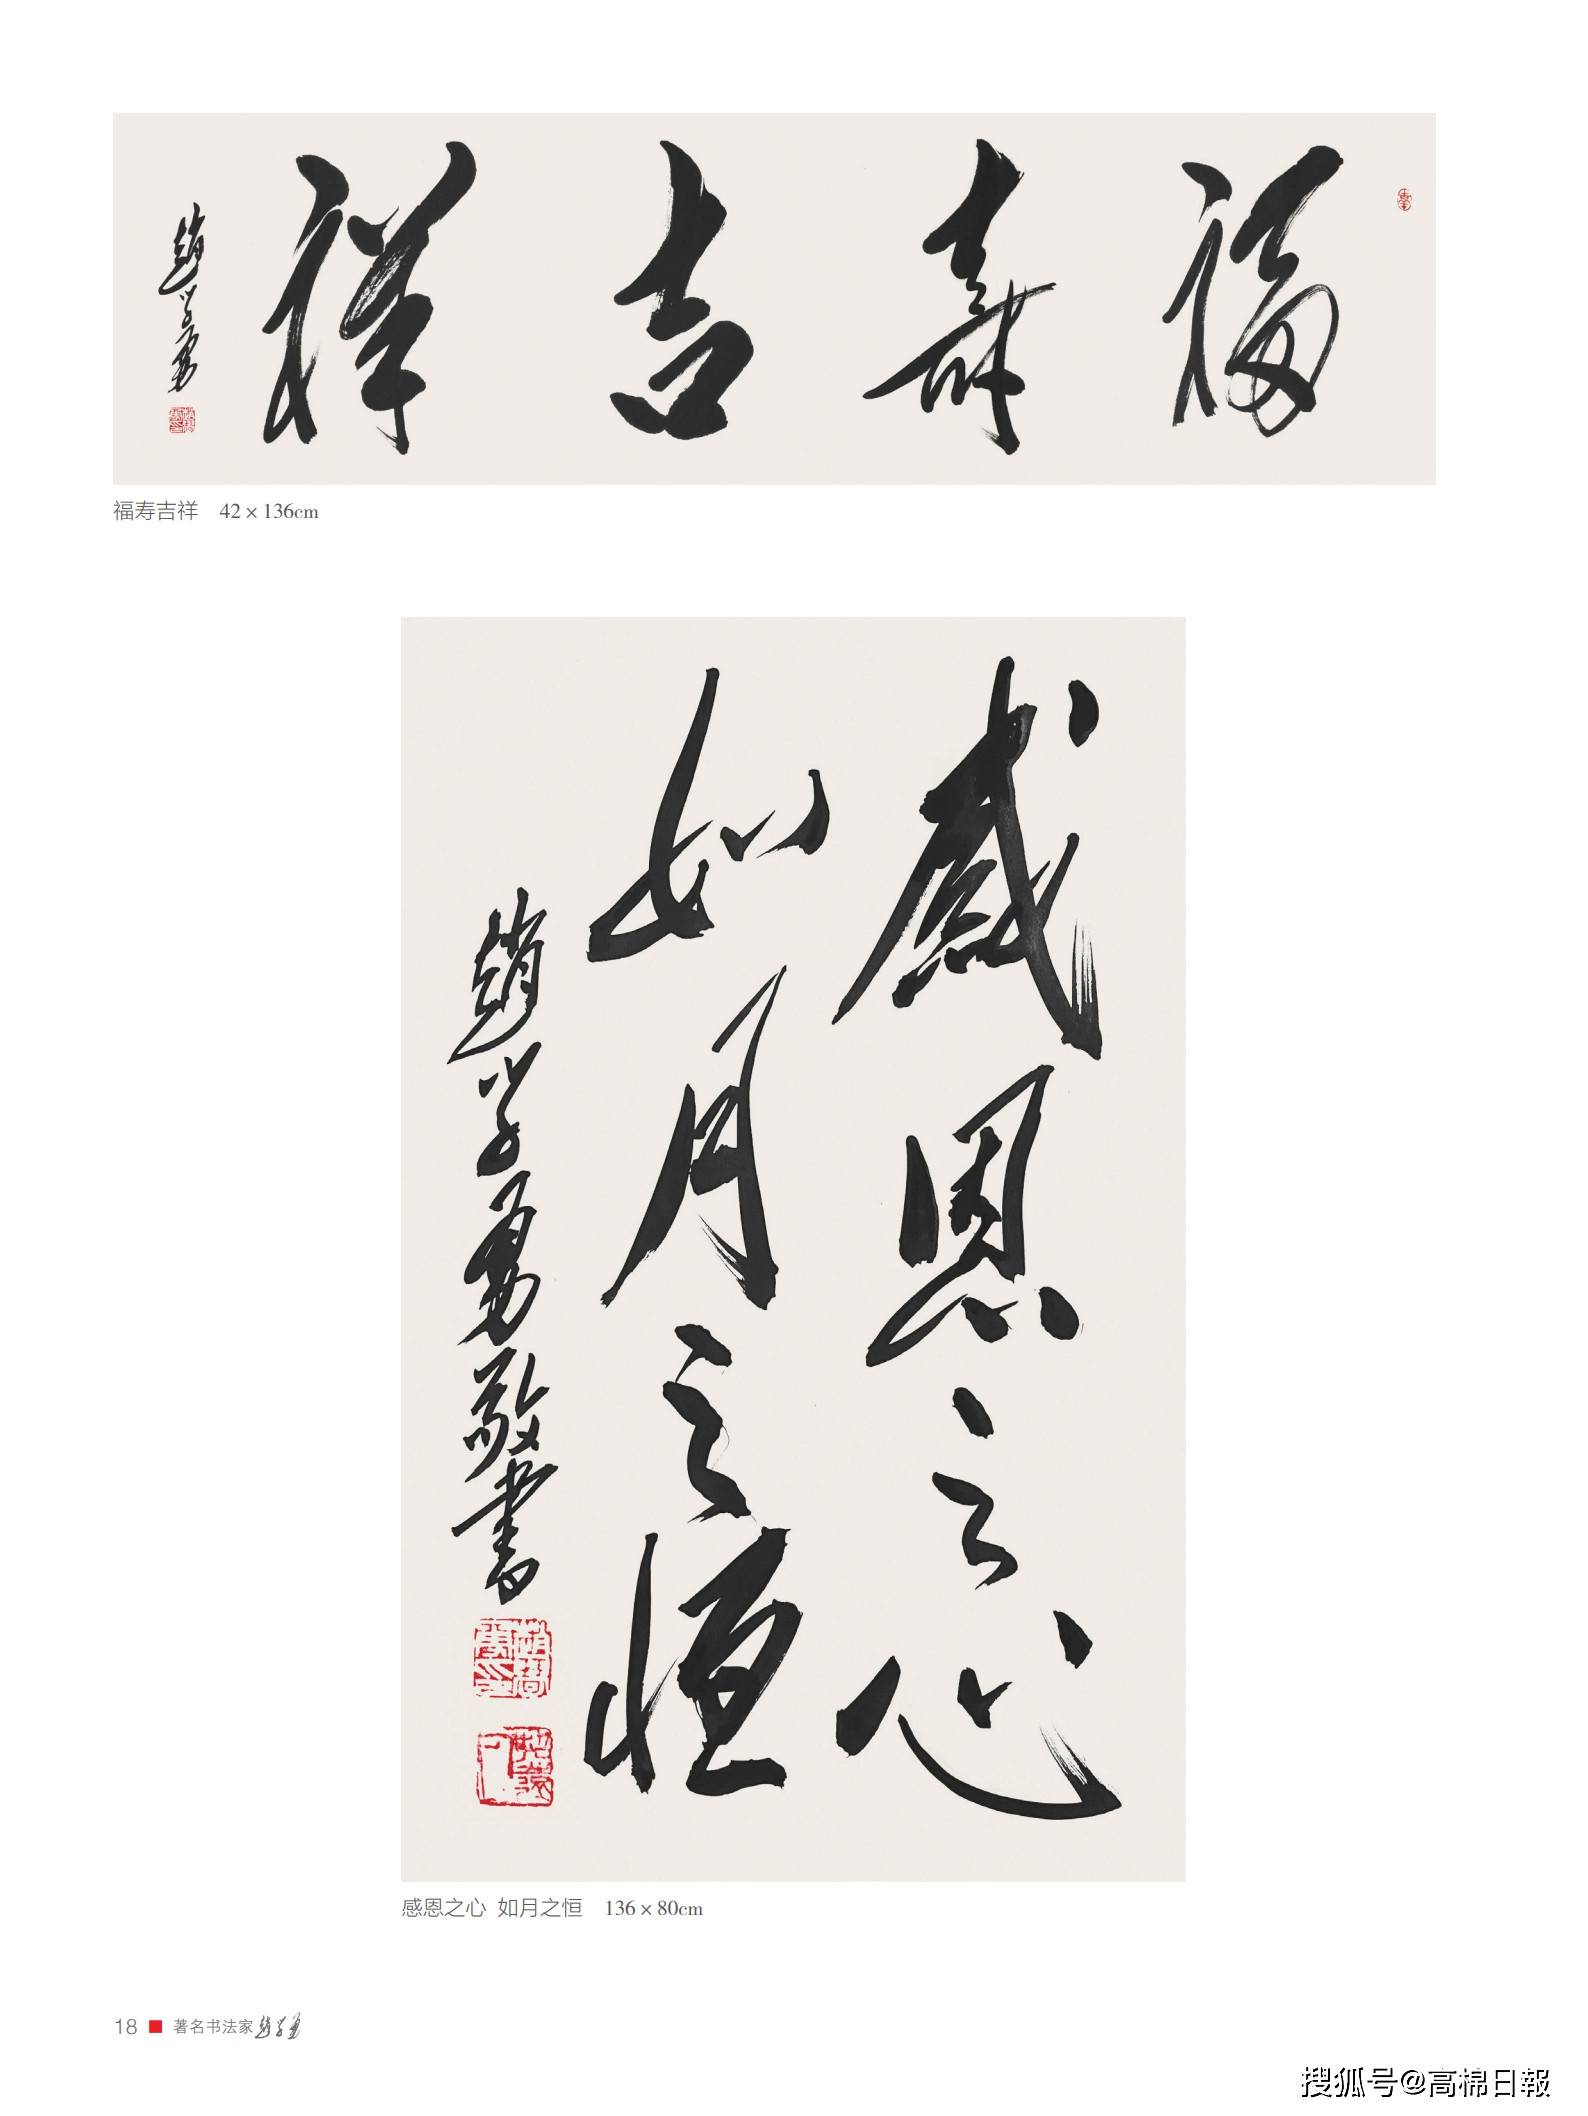 福寿吉祥
趙学勇
福寿吉祥 42×136cm
感恩之心
如月之恒
趙学勇敬書
感恩之心 如月之恒 136×80cm
18 著名书法家趙学勇
搜狐号@高棉日報